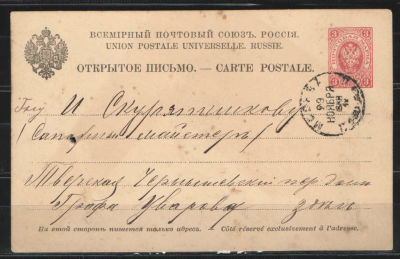 ВСЕМІРНЫЙ ПОЧТОВЫЙ СОЮЗЪ. РОССІЯ.
UNION POSTALE UNIVERSELLE. RUSSIE.
ОТКРЫТОЕ ПИСЬМО. — CARTE POSTALE.
3 3
3 3
МОСКВА
НОЯБРЯ
И
Тверская Чернышевскій пер домъ
Графа Уварова
На этой сторонѣ пишется только адресъ. — Côté réservé exclusivement à l'adresse.